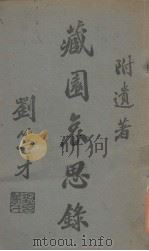 附遺著
藏園哀思錄
劉 才